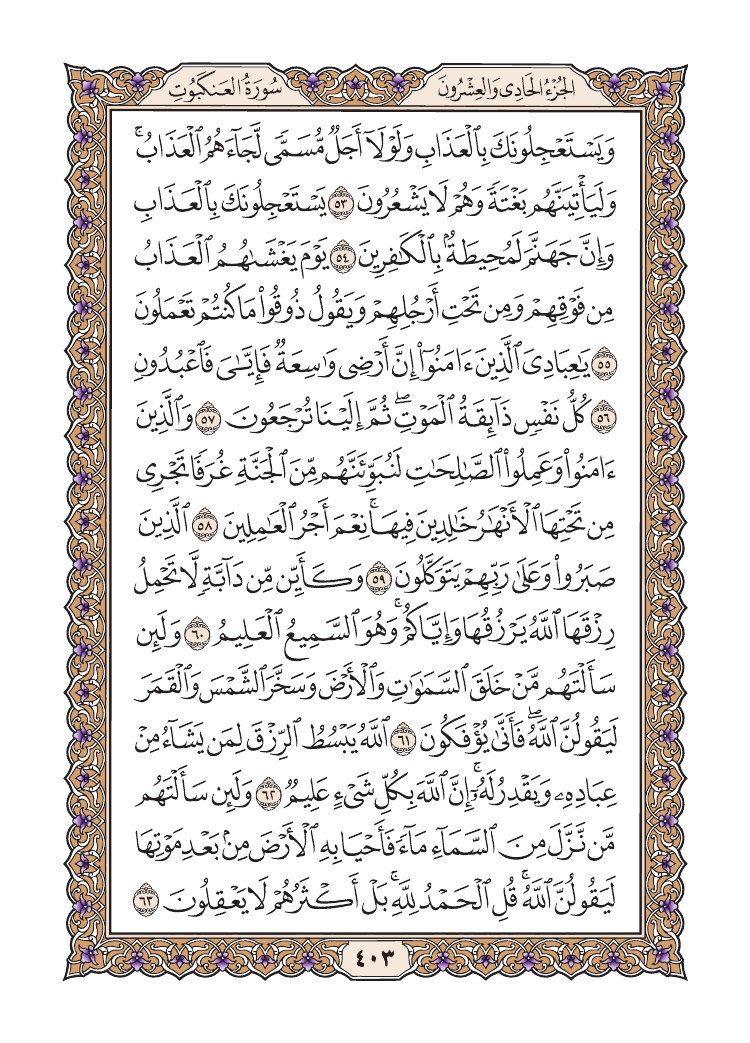 الجُزْءُ الحَادِى وَالعِشْرُونَ
سُورَةُ العَنكَبُوتِ
وَيَسْتَعْجِلُونَكَ بِٱلْعَذَابِ وَلَوْلَآ أَجَلٌ مُّسَمًّى لَّجَآءَهُمُ ٱلْعَذَابُ ۚ
وَلَيَأْتِيَنَّهُم بَغْتَةً وَهُمْ لَا يَشْعُرُونَ ٥٣ يَسْتَعْجِلُونَكَ بِٱلْعَذَابِ
وَإِنَّ جَهَنَّمَ لَمُحِيطَةٌۢ بِٱلْكَٰفِرِينَ ٥٤ يَوْمَ يَغْشَىٰهُمُ ٱلْعَذَابُ
مِن فَوْقِهِمْ وَمِن تَحْتِ أَرْجُلِهِمْ وَيَقُولُ ذُوقُوا۟ مَا كُنتُمْ تَعْمَلُونَ
٥٥ يَٰعِبَادِىَ ٱلَّذِينَ ءَامَنُوٓا۟ إِنَّ أَرْضِى وَٰسِعَةٌ فَإِيَّٰىَ فَٱعْبُدُونِ
٥٦ كُلُّ نَفْسٍ ذَآئِقَةُ ٱلْمَوْتِ ۖ ثُمَّ إِلَيْنَا تُرْجَعُونَ ٥٧ وَٱلَّذِينَ
ءَامَنُوا۟ وَعَمِلُوا۟ ٱلصَّٰلِحَٰتِ لَنُبَوِّئَنَّهُم مِّنَ ٱلْجَنَّةِ غُرَفًا تَجْرِى
مِن تَحْتِهَا ٱلْأَنْهَٰرُ خَٰلِدِينَ فِيهَا ۚ نِعْمَ أَجْرُ ٱلْعَٰمِلِينَ ٥٨ ٱلَّذِينَ
صَبَرُوا۟ وَعَلَىٰ رَبِّهِمْ يَتَوَكَّلُونَ ٥٩ وَكَأَيِّن مِّن دَآبَّةٍ لَّا تَحْمِلُ
رِزْقَهَا ٱللَّهُ يَرْزُقُهَا وَإِيَّاكُمْ ۚ وَهُوَ ٱلسَّمِيعُ ٱلْعَلِيمُ ٦٠ وَلَئِن
سَأَلْتَهُم مَّنْ خَلَقَ ٱلسَّمَٰوَٰتِ وَٱلْأَرْضَ وَسَخَّرَ ٱلشَّمْسَ وَٱلْقَمَرَ
لَيَقُولُنَّ ٱللَّهُ ۖ فَأَنَّىٰ يُؤْفَكُونَ ٦١ ٱللَّهُ يَبْسُطُ ٱلرِّزْقَ لِمَن يَشَآءُ مِنْ
عِبَادِهِۦ وَيَقْدِرُ لَهُۥٓ ۚ إِنَّ ٱللَّهَ بِكُلِّ شَىْءٍ عَلِيمٌ ٦٢ وَلَئِن سَأَلْتَهُم
مَّن نَّزَّلَ مِنَ ٱلسَّمَآءِ مَآءً فَأَحْيَا بِهِ ٱلْأَرْضَ مِنۢ بَعْدِ مَوْتِهَا
لَيَقُولُنَّ ٱللَّهُ ۚ قُلِ ٱلْحَمْدُ لِلَّهِ ۚ بَلْ أَكْثَرُهُمْ لَا يَعْقِلُونَ ٦٣
٤٠٣